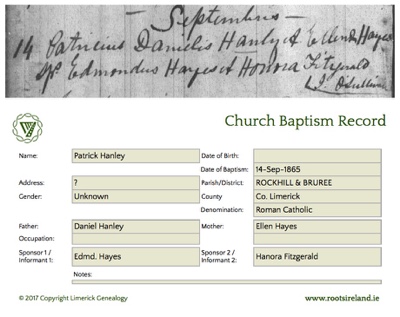 Septembris
14 Patricius Danielis Hanly & Ellena Hayes
Sps Edmondus Hayes & Honora Fitzgerald
Church Baptism Record
Name: Patrick Hanley Date of Birth:
Date of Baptism: 14-Sep-1865
Address: ? Parish/District: ROCKHILL & BRUREE
Gender: Unknown County Co. Limerick
Denomination: Roman Catholic
Father: Daniel Hanley Mother: Ellen Hayes
Occupation:
Sponsor 1 / Informant 1: Edmd. Hayes Sponsor 2 / Informant 2: Hanora Fitzgerald
Notes:
© 2017 Copyright Limerick Genealogy www.rootsireland.ie